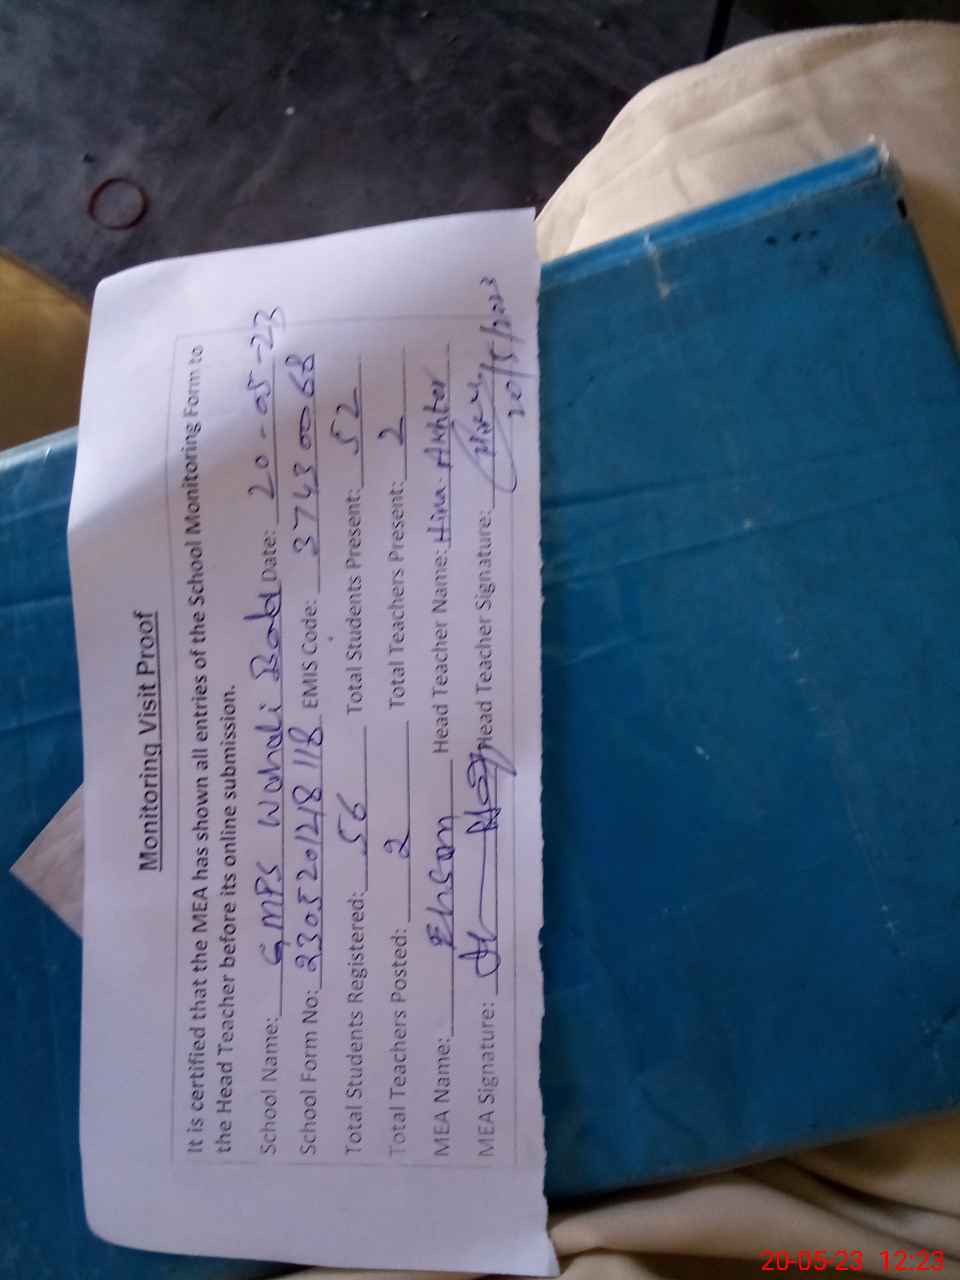 Monitoring Visit Proof
It is certified that the MEA has shown all entries of the School Monitoring Form to
the Head Teacher before its online submission.
School Name: GMPS Wahali Date: 20-05-23
School Form No: 230520121818 EMIS Code: 37430068
Total Students Registered: 56 Total Students Present: 52
Total Teachers Posted: 2 Total Teachers Present: 2
MEA Name: Ehsan Head Teacher Name: Hina Akhter
MEA Signature: Head Teacher Signature:
20/5/2023
20-05-23 12:23